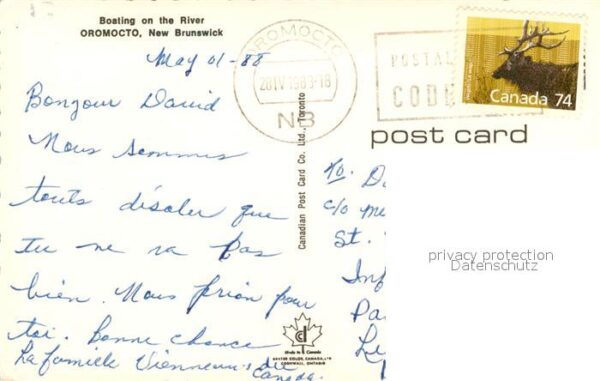 Boating on the River
OROMOCTO, New Brunswick
May 01-88
Bonjour David
Nous sommes
touts désoler que
tu ne va pas
bien. Nous prion pour
toi. Bonne chance
La famille Vienneau's du
Canada.
OROMOCTO
28 IV 1989-18
NB
POSTAL
CODE
Canada 74
post card
Canadian Post Card Co. Ltd., Toronto
To. D
c/o
St.
Inf
Pa
privacy protection
Datenschutz
Made in Canada